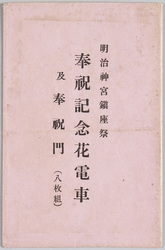 明治神宮鎮座祭
奉祝記念花電車
及奉祝門(八枚組)